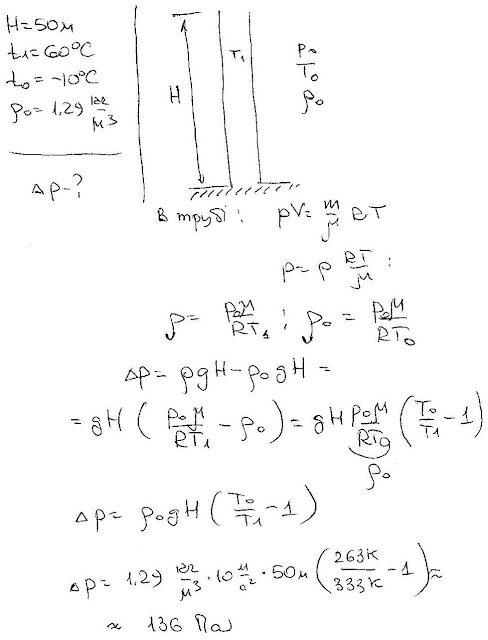 H=50м
t₁=60°C
t₀=-10°C
ρ₀=1,29 кг/м³
Δp-?
H
T₁
p₀
T₀
ρ₀
В трубі: pV= m/μ RT
p=ρ RT/μ :
ρ= p₀μ/RT₁ ; ρ₀ = p₀μ/RT₀
Δp= ρgH-ρ₀gH =
= gH ( p₀μ/RT₁ - ρ₀ ) = gH p₀μ/RT₀ ( T₀/T₁ -1 )
ρ₀
Δp= ρ₀gH ( T₀/T₁ -1 )
Δp= 1,29 кг/м³ · 10 м/с² · 50м ( 263К/333К -1 ) ≈
≈ 136 Па